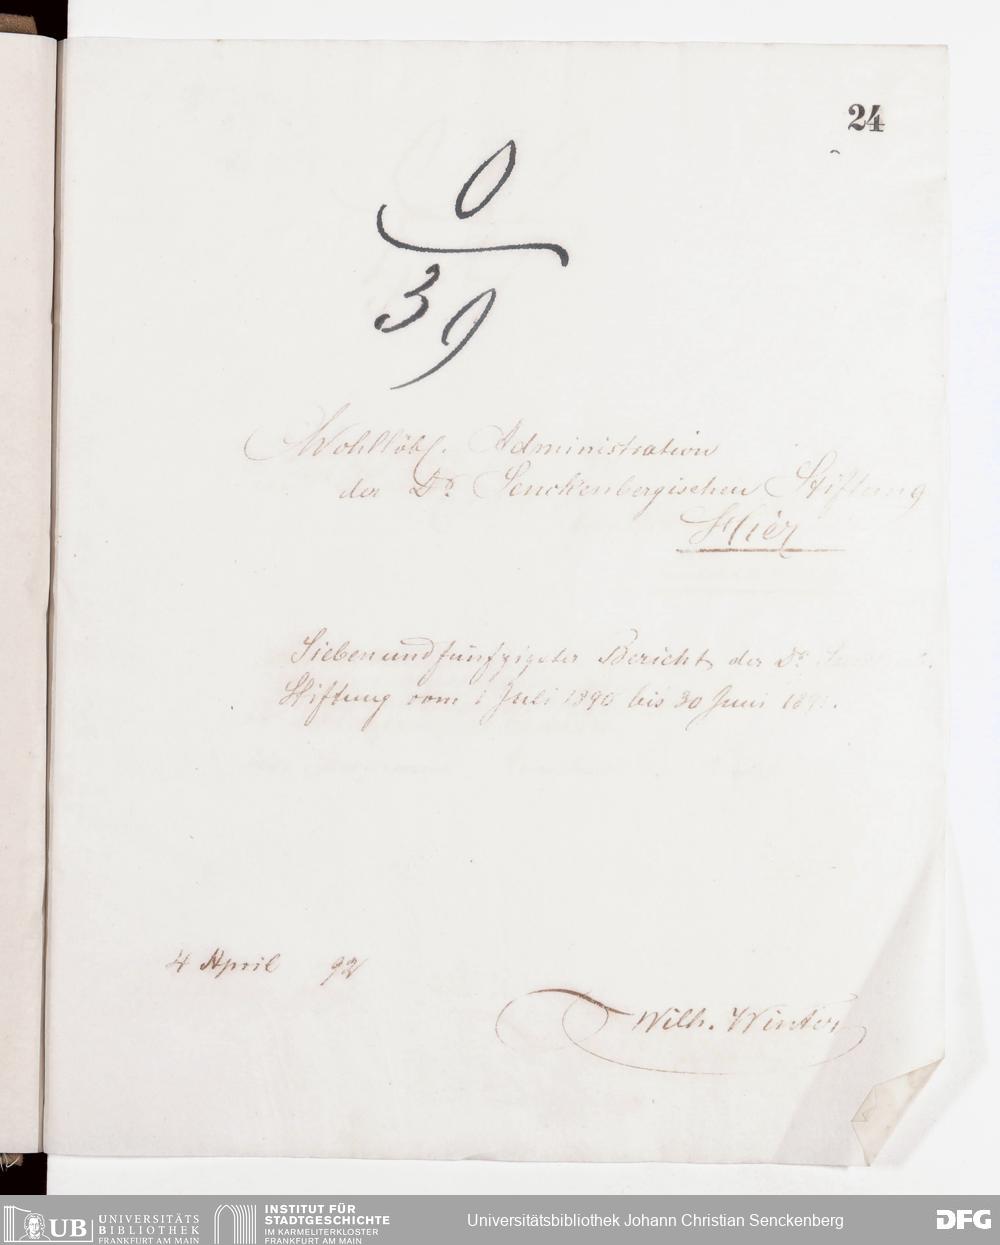 24
0
39
Wohllöbl. Administration
der Dr. Senckenbergischen Stiftung
Hier
Siebenundfünfzigster Bericht der Dr.
Stiftung vom 1 Juli 1890 bis 30 Juni 1891.
4 April 92
Wilh. Winter
UB UNIVERSITÄTS
BIBLIOTHEK
FRANKFURT AM MAIN
INSTITUT FÜR
STADTGESCHICHTE
IM KARMELITERKLOSTER
FRANKFURT AM MAIN
Universitätsbibliothek Johann Christian Senckenberg
DFG